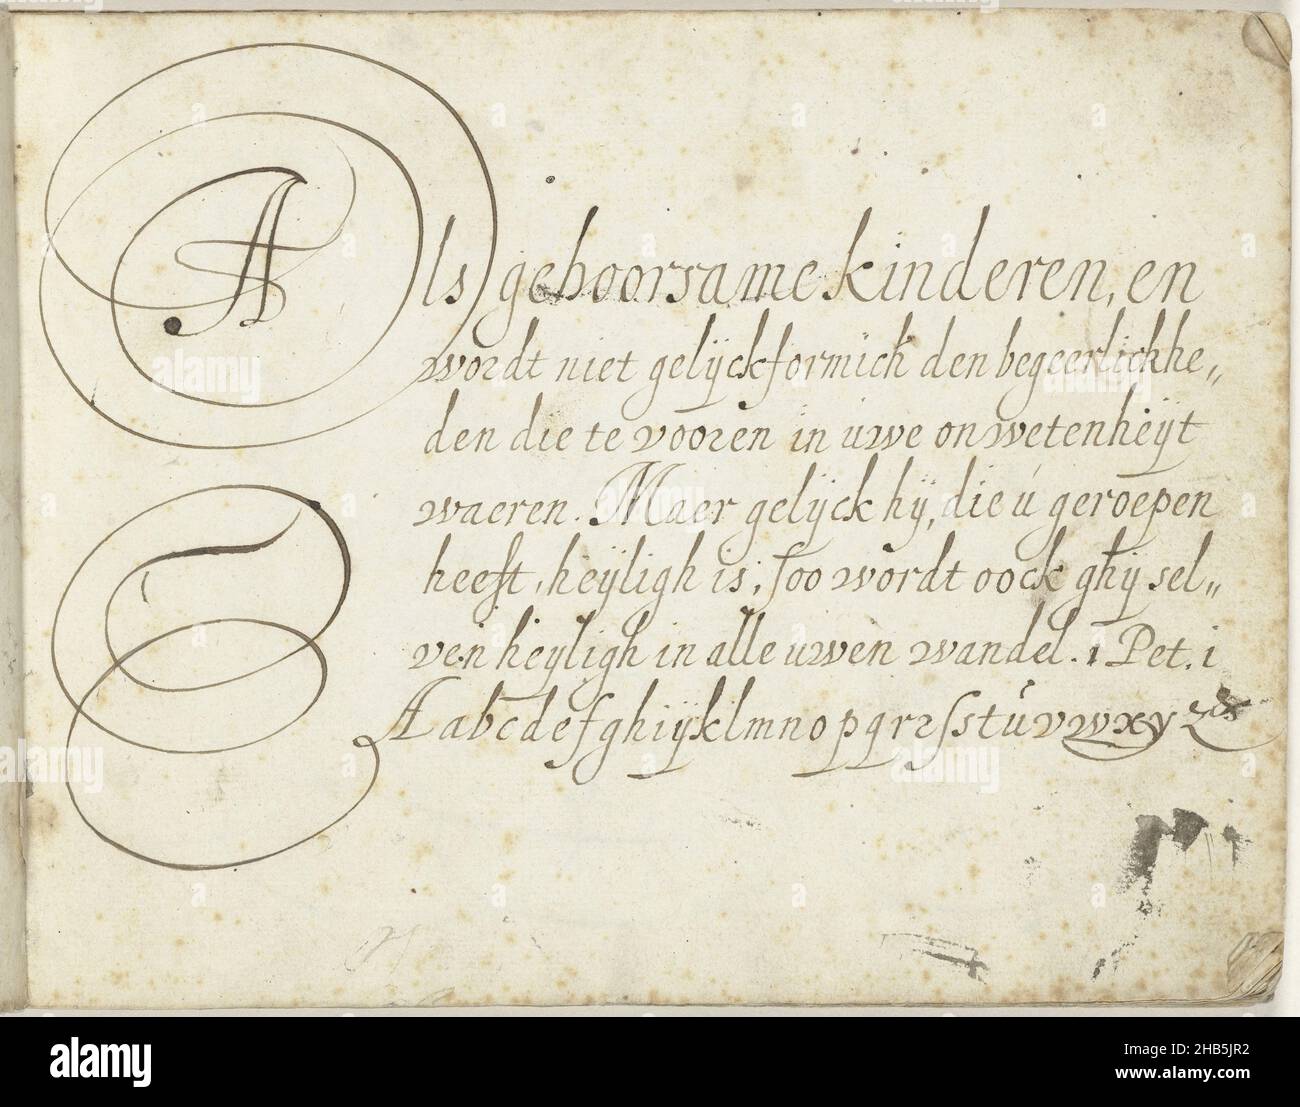 Als gehoorsame kinderen, en
wordt niet gelÿckformich den begeerlickhe„
den die te vooren in uwe onwetenheÿt
waeren. Maer gelÿck hÿ, die ú geroepen
heeft, heÿligh is, soo wordt oock ghÿ sel„
ven heÿligh in alle uwen wandel. 1 Pet. i
A a b c d e f g h i ÿ k l m n o p q r ꝛ ſ s t ú v w x y z &
alamy
Image ID: 2HB5JR2
www.alamy.com